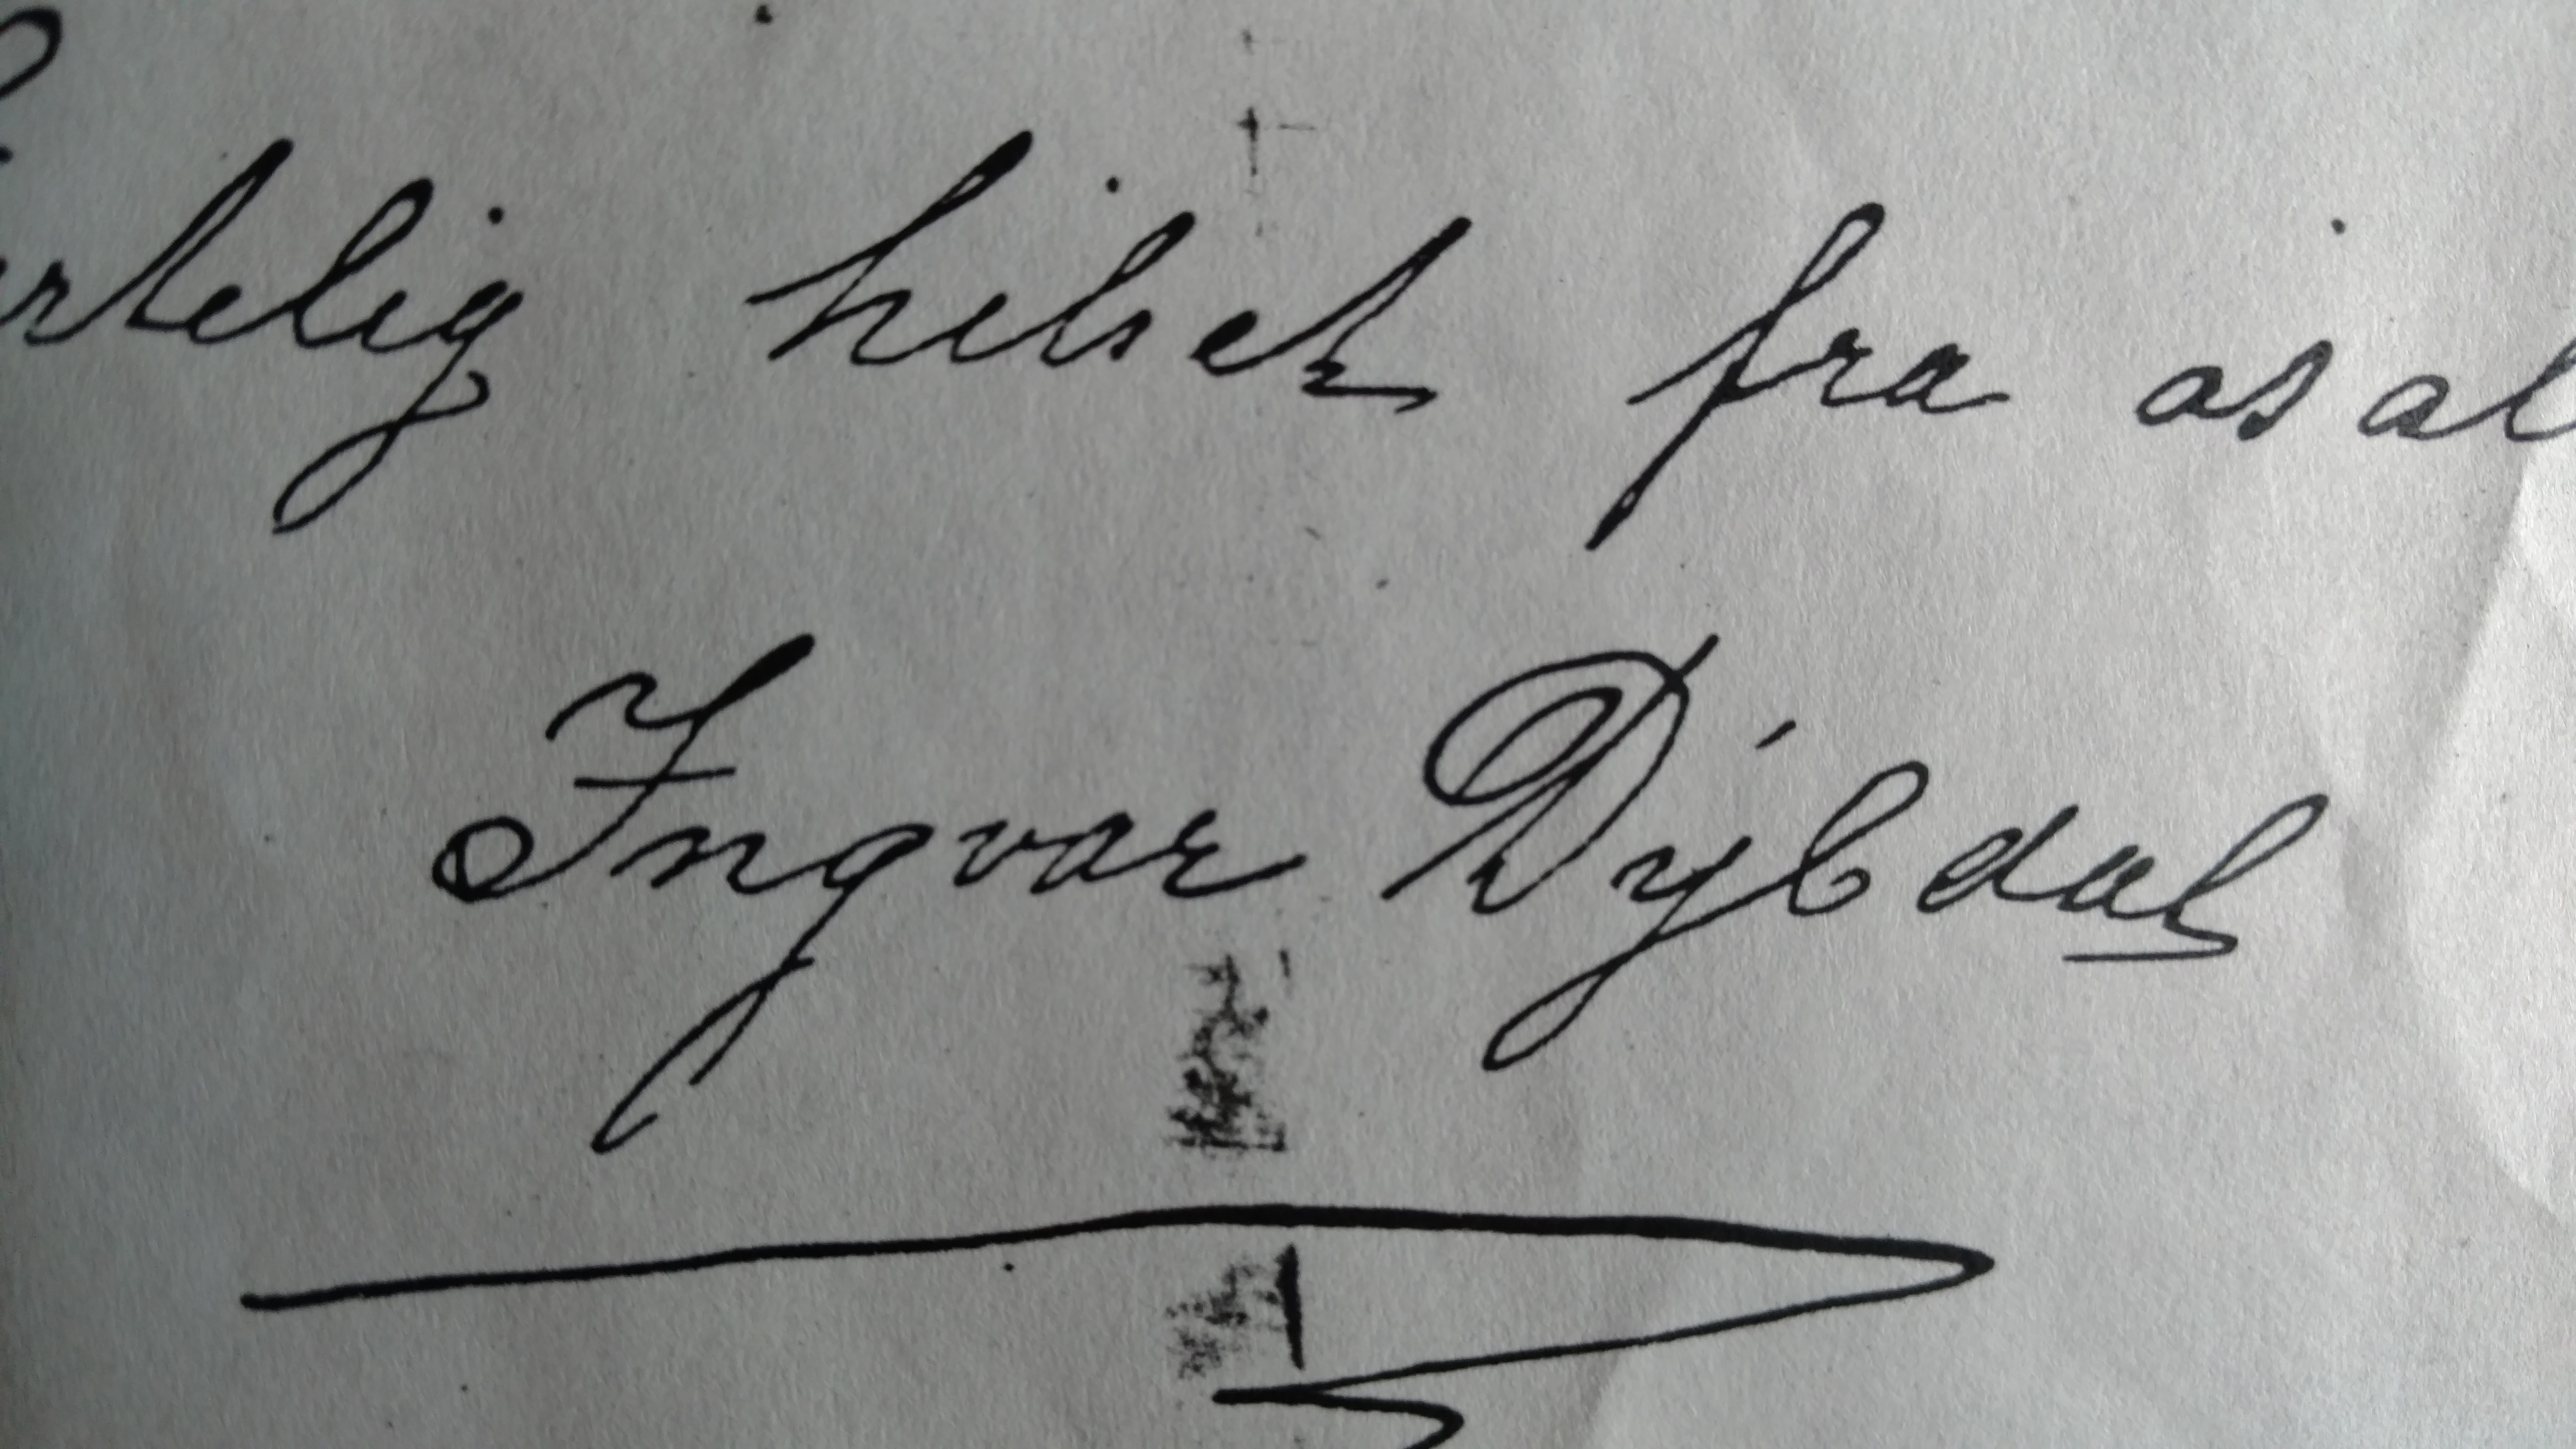 rtelig hilset fra os al
Ingvar Dybdal